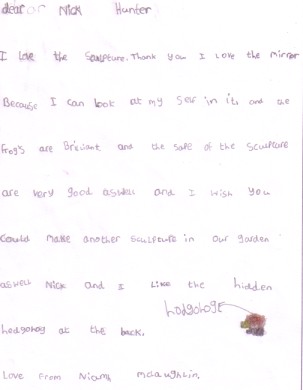 dear Nick Hunter
I love the Sculpture. Thank you I Love the mirror
Because I can look at my self in it, and the
frog's are Briliant and the sape of the Sculpture
are very good aswell and I wish you
Could make another Sculpture in our garden
aswell Nick and I Like the hidden
hodgohoge
hedgohog at the back.
Love From Niamh mclaughlin.